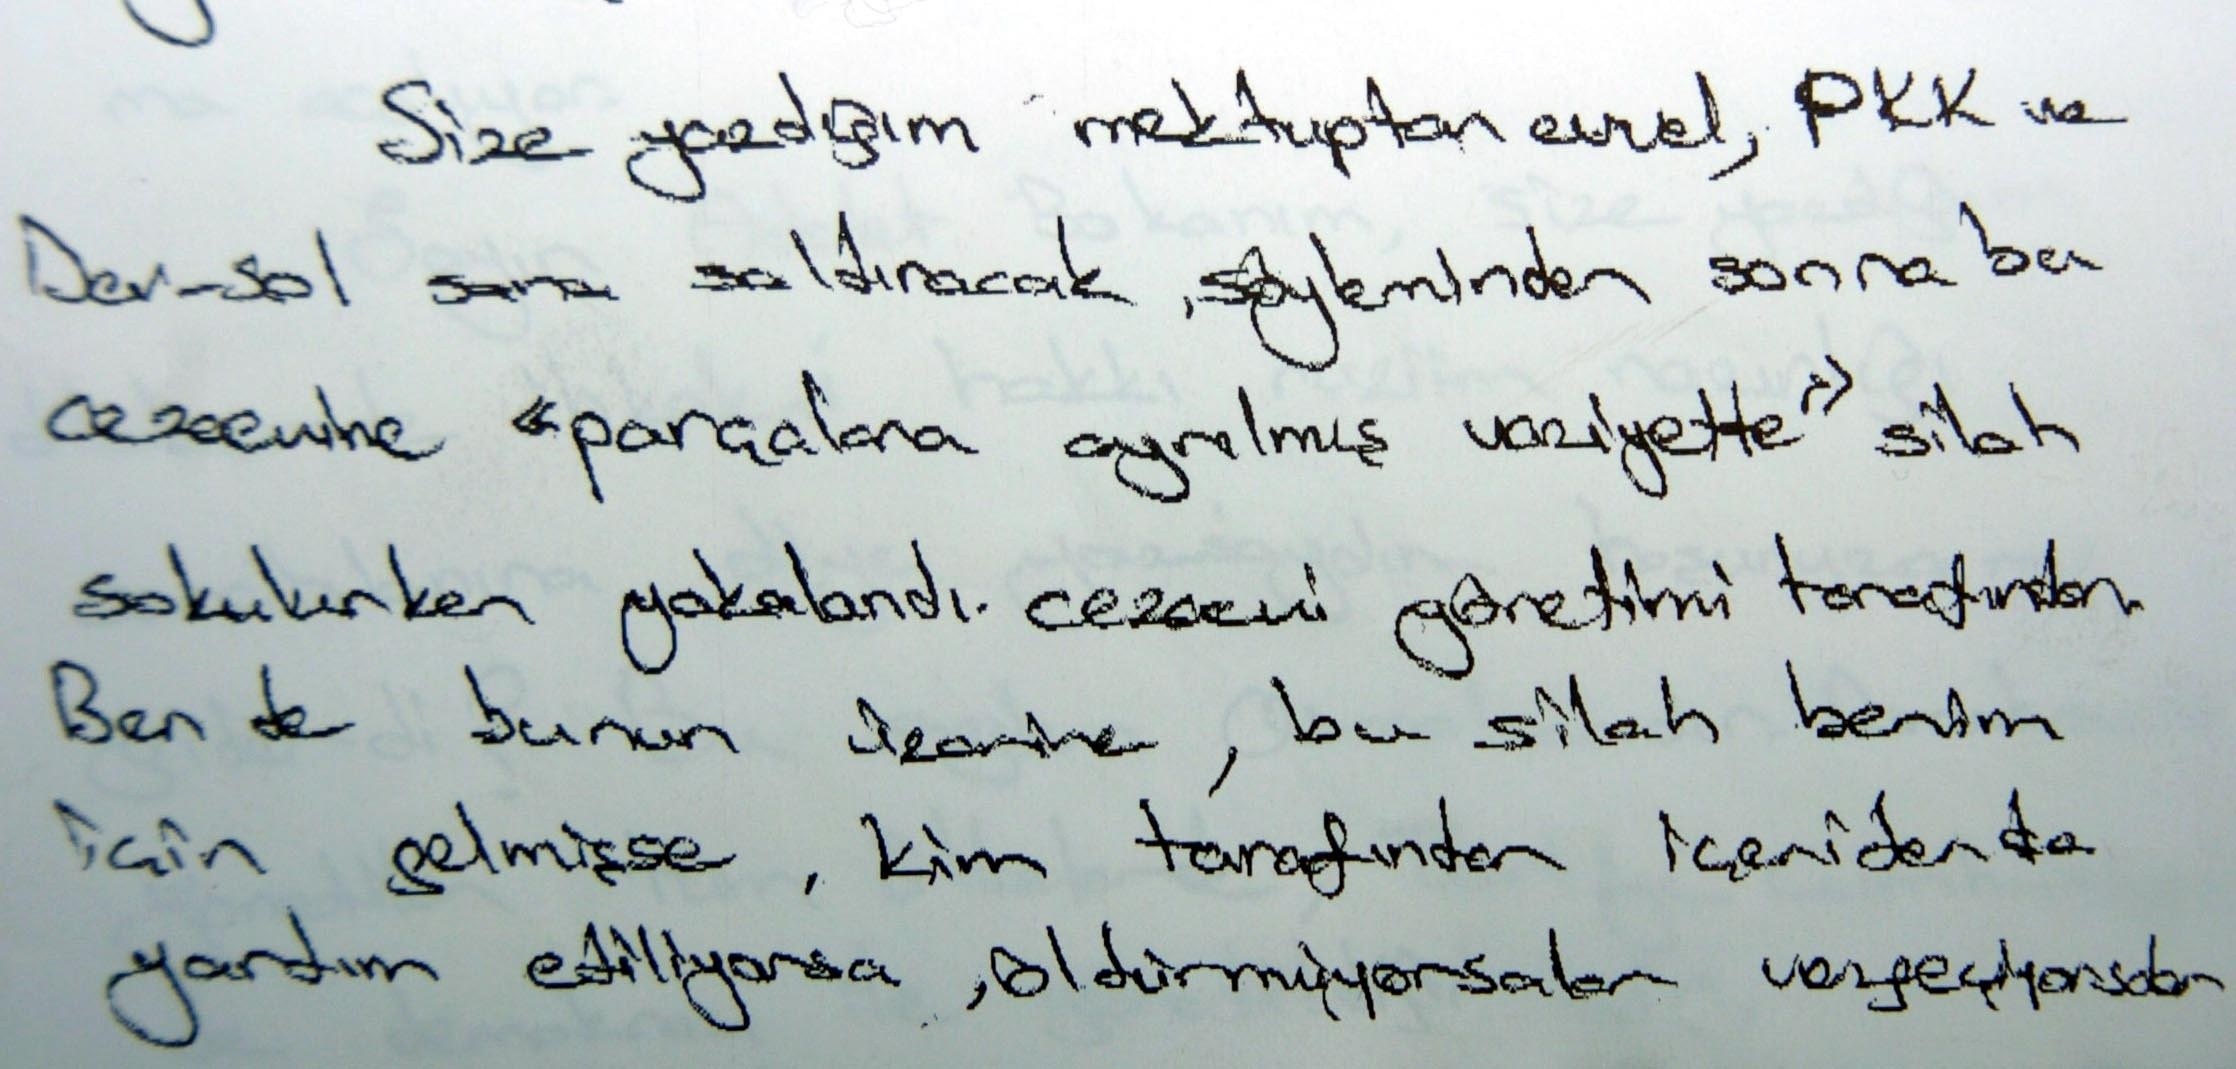 Size yazdığım mektuptan evvel, PKK ve
Dev-sol sana saldıracak, söyleminden sonra bu
cezaevine "parçalara ayrılmış vaziyette" silah
sokulurken yakalandı. cezaevi yönetimi tarafından
Ben de bunun üzerine, bu silah benim
için gelmişse, kim tarafından içeriden de
yardım ediliyorsa, öldürmüyorsalar vazgeçiyorsalar